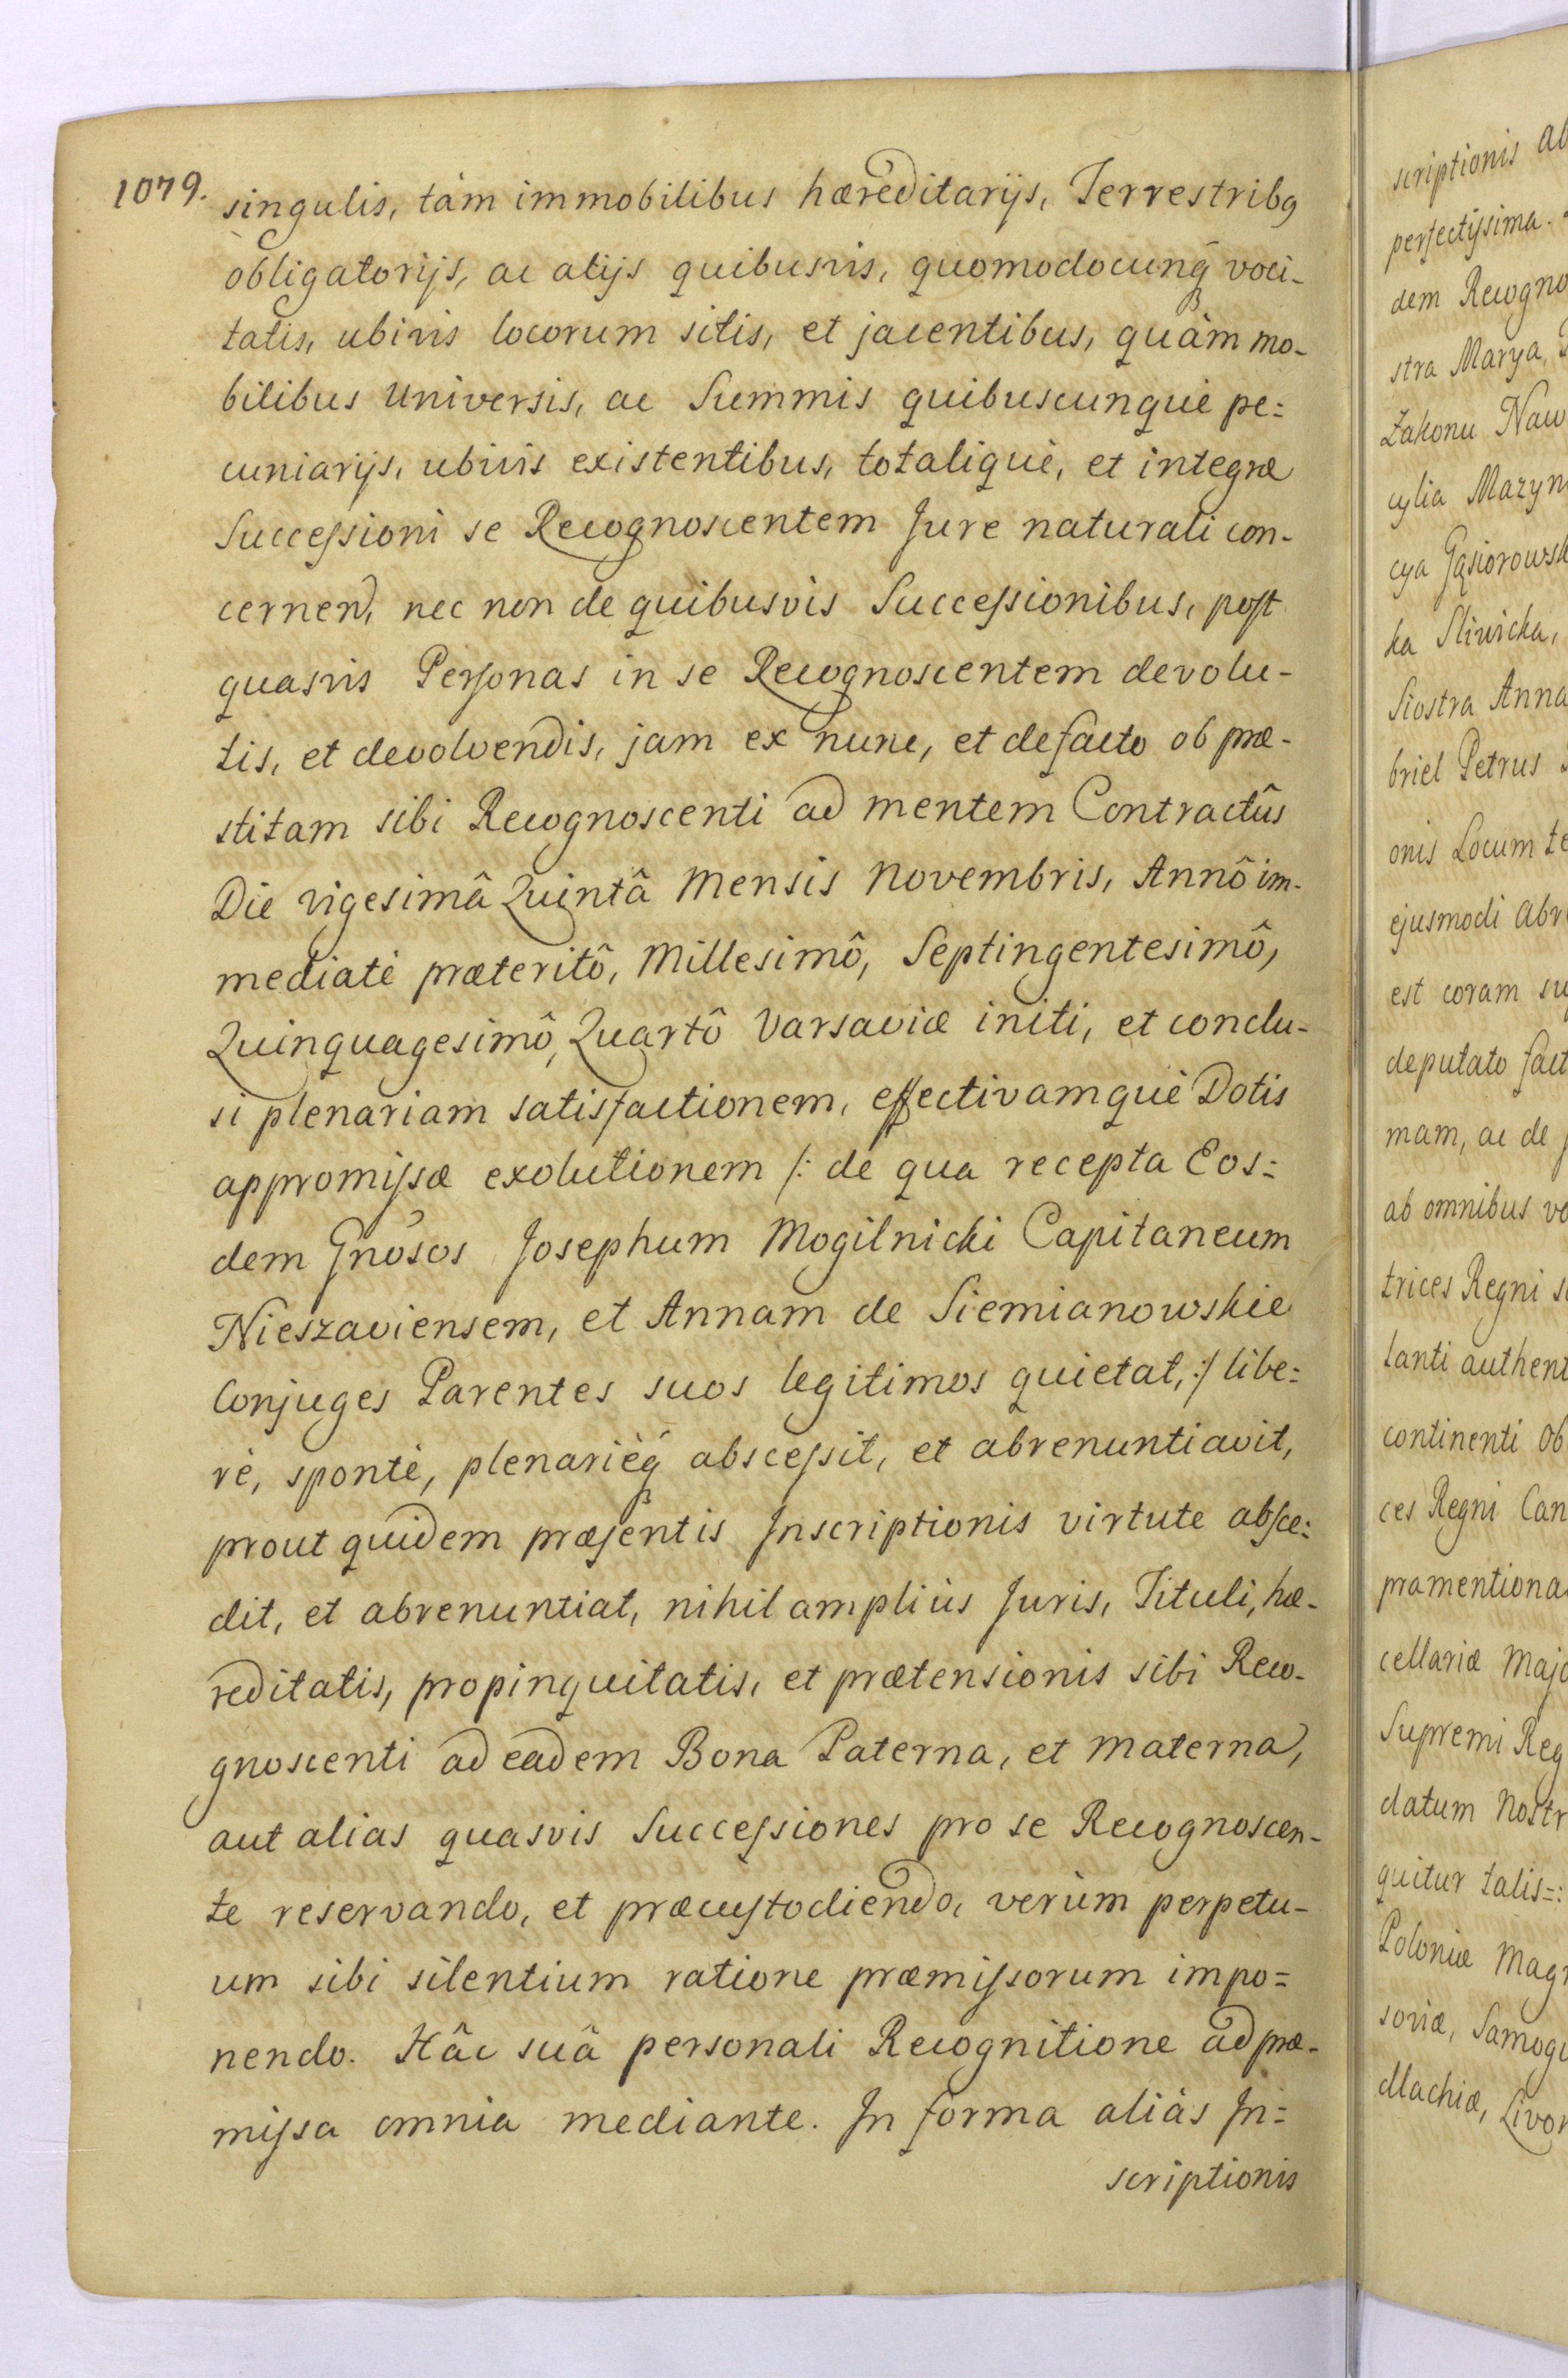 1079.
singulis, tàm immobilibus hæreditarijs, Terrestribꝯ
obligatorijs, ac alijs quibusvis, quomodocunq́ voci-
tatis, ubivis locorum sitis, et jacentibus, quàm mo-
bilibus Universis, ac Summis quibuscunquè pe=
cuniarijs, ubivis existentibus, totaliquè, et integræ
Successioni se Recognoscentem Jure naturali con-
cernen, nec non de quibusvis Successionibus, post
quasvis Personas in se Recognoscentem devolu-
tis, et devolvendis, jam ex nunc, et defacto ob præ-
stitam sibi Recognoscenti ad mentem Contractûs
Die vigesimâ Quintâ Mensis Novembris, Annô im-
mediatè præteritô, Millesimô, Septingentesimô,
Quinquagesimô, Quartô Varsaviæ initi, et conclu-
si plenariam satisfactionem, effectivamquè Dotis
appromissæ exolutionem /: de qua recepta Eos=
dem Gnosos Josephum Mogilnicki Capitaneum
Nieszaviensem, et Annam de Siemianowskie
Conjuges Parentes suos legitimos quietat, :/ libe=
rè, spontè, plenarièq́ abscessit, et abrenuntiavit,
prout quidem præsentis Inscriptionis virtute absce=
dit, et abrenuntiat, nihil ampliùs Juris, Tituli, hæ-
reditatis, propinquitatis, et prætensionis sibi Reco-
gnoscenti ad eadem Bona Paterna, et Materna,
aut alias quasvis Successiones pro se Recognoscen-
te reservando, et præcustodiendo, verùm perpetu-
um sibi silentium ratione præmissorum impo=
nendo. Hâc suâ personali Recognitione ad præ-
missa omnia mediante. In forma aliàs In=
scriptionis
scriptionis ab
perfectissima.
dem Recogno
stra Marya
Zakonu Naw
cylia Mazyn
cya Gąsiorowsk
ka Sliwicka,
Siostra Anna
briel Petrus
onis Locum te
ejusmodi abr
est coram su
deputato fact
mam, ac de
ab omnibus ve
trices Regni s
lanti authent
continenti ob
ces Regni Can
pramentiona
cellariæ Majo
Supremi Reg
datum Nostr
quitur talis=:
Poloniæ Mag
soviæ, Samogi
dlachiæ, Livon